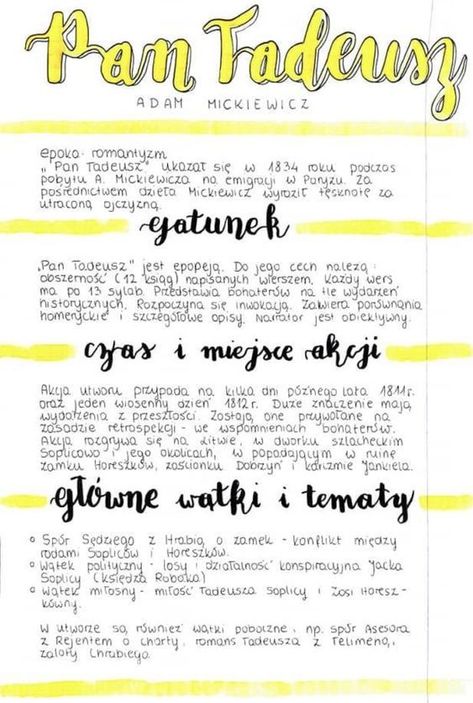 Pan Tadeusz
ADAM MICKIEWICZ
epoka: romantyzm
„Pan Tadeusz" ukazał się w 1834 roku podczas
pobytu A. Mickiewicza na emigracji w Paryżu. Za
pośrednictwem dzieła Mickiewicz wyraził tęsknotę za
utraconą ojczyzną.
gatunek
„Pan Tadeusz" jest epopeją. Do jego cech należą:
obszerność (12 ksiąg) napisanych wierszem, każdy wers
ma po 13 sylab. Przedstawia bohaterów na tle wydarzeń
historycznych. Rozpoczyna się inwokacją. Zawiera porównania
homeryckie i szczegółowe opisy. Narrator jest obiektywny.
czas i miejsce akcji
Akcja utworu przypada na kilka dni późnego lata 1811r.
oraz jeden wiosenny dzień 1812r. Duże znaczenie mają
wydarzenia z przeszłości. Zostają one przywołane na
zasadzie retrospekcji - we wspomnieniach bohaterów.
Akcja rozgrywa się na Litwie, w dworku szlacheckim
Soplicowo i jego okolicach, w popadającym w ruinę
zamku Horeszków, zaścianku Dobrzyń i karczmie Jankiela.
główne wątki i tematy
Spór Sędziego z Hrabią o zamek - konflikt między
rodami Sopliców i Horeszków.
wątek polityczny - losy i działalność konspiracyjna Jacka
Soplicy (księdza Robaka)
wątek miłosny - miłość Tadeusza Soplicy i Zosi Horesz-
kówny.
W utworze są również wątki poboczne, np. spór Asesora
z Rejentem o charty, romans Tadeusza z Telimeną,
zaloty Hrabiego.